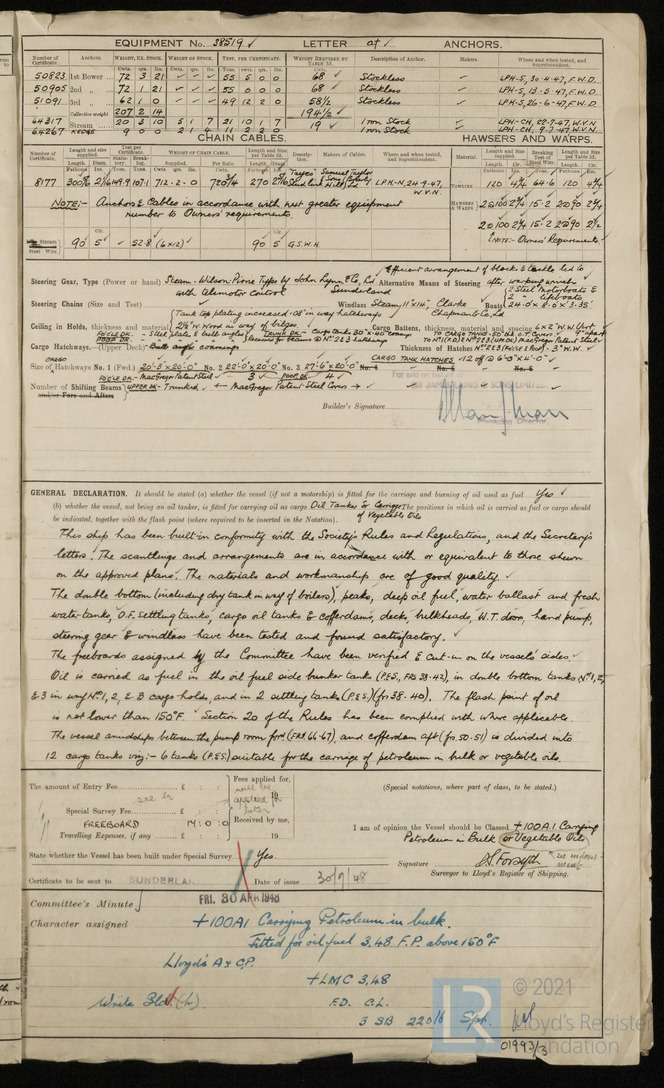 EQUIPMENT No. 38519 LETTER at ANCHORS.
Number of Certificate. Anchors. Weight, Ex. Stock. Weight of Stock. Test, per Certificate. Weight Required by Table 53. Description of Anchor. Makers. Where and when tested, and Superintendent.
Cwts. qrs. lbs.
50823 1st Bower 72 3 21 55 5 0 0 68 Stockless LPH-S, 30-4-47, F.W.D.
50905 2nd 72 1 21 55 0 0 0 68 Stockless LPH-S, 13-5-47, F.W.D.
51091 3rd 62 1 0 49 12 2 0 58½ Stockless LPH-S, 26-6-47, F.W.D.
Collective weight 207 2 14 194½
64317 Stream 20 3 10 5 1 7 21 10 1 7 19 Iron Stock LPH-CH, 22-7-47, W.V.N.
64267 KEDGE 9 0 0 2 1 4 11 2 2 0 Iron Stock LPH-CH, 9-7-47, W.V.N.
CHAIN CABLES. HAWSERS AND WARPS.
Number of Certificate. Length and size supplied. Test per Certificate. Weight of Chain Cable. Length and Size per Table 53. Description. Makers of Cables. Where and when tested, and Superintendent. Material. Length and Size supplied. Breaking Test of Steel Wire. Length and Size per Table 53.
8177 300 2⅛ 49.9 107.1 712-2-0 720¾ 270 2⅛ Tayco Stud Link Samuel Taylor & Sons (Brierley Hill) Ld LPH-N, 24-9-47, W.V.N.
TOWLING 120 4¾ 64.6 120 4¾
HAWSERS & WARPS 2@100 2¾ 15.2 2@90 2¾
2@100 2¾ 15.2 2@90 2½
NOTE:- Anchors & Cables in accordance with next greater equipment
number to Owners' requirements.
NOTE:- Owners' Requirements
Stream Steel Wire 90 5 52.8 (6x12) 90 5 G.S.W.H.
Steering Gear, Type (Power or hand) Steam - Wilson Pirrie Type by John Lynn & Co, Ld Sunderland with telemotor control Alternative Means of Steering Efficient arrangement of blocks & tackle led to after working winch
Steering Chains (Size and Test) Windlass Steam 11"x14", Clarke Chapman & Co Ld Boats 2 Steel Motorboats & 2 " lifeboats 24.0x8.0x3.35'
Ceiling in Holds, thickness and material Tank top plating increased .08" in way hatchways 2½" W. Wood in way of bilges Cargo Battens, thickness, material and spacing 6x2" W.W. Vert.
Cargo Hatchways. (Upper Deck) Bulb angle coamings Thickness of Hatches No 2&3 (Fo'c'le & Poop) - 3" W.W.
Size of CARGO Hatchways No. 1 (Fwd.) 20'-3"x20'-0" No. 2 22'-6"x20'-0" No. 3 27'-6"x20'-0" No. 4 CARGO TANK HATCHES 12 off @ 6'-0"x4'-0" No. 5 No. 6
Number of Shifting Beams and/or Fore and Afters FO'C'LE DK. - MacGregor Patent Steel 3 POOP DK. 4
UPPER DK - Trunked ← MacGregor Patent Steel Covers →
Builder's Signature
Managing Director
GENERAL DECLARATION. It should be stated (a) whether the vessel (if not a motorship) is fitted for the carriage and burning of oil used as fuel Yes
(b) whether the vessel, not being an oil tanker, is fitted for carrying oil as cargo Oil Tanker & Carriage of Vegetable Oils The positions in which oil is carried as fuel or cargo should
be indicated, together with the flash point (where required to be inserted in the Notation).
This ship has been built in conformity with the Society's Rules and Regulations, and the Secretary's
letters. The scantlings and arrangements are in accordance with or equivalent to those shewn
on the approved plans. The materials and workmanship are of good quality.
The double bottom (including dry tank in way of boilers), peaks, deep oil fuel, water ballast and fresh
water tanks, O.F. settling tanks, cargo oil tanks & cofferdams, decks, bulkheads, W.T. doors, hand pump,
steering gear & windlass have been tested and found satisfactory.
The freeboards assigned by the Committee have been verified & cut in on the vessel's sides.
Oil is carried as fuel in the oil fuel side bunker tanks (P.&S., FRS 38-42), in double bottom tanks No 1, 2,
& 3 in way No 1, 2, & 3 cargo holds, and in 2 settling tanks (P.&S) (fr 38-40). The flash point of oil
is not lower than 150°F. Section 20 of the Rules has been complied with where applicable.
The vessel amidships between the pump room for'd (FRS 66-67), and cofferdam aft (fr. 50-51) is divided into
12 cargo tanks viz:- 6 tanks (P.&S) suitable for the carriage of petroleum in bulk or vegetable oils.
The amount of Entry Fee £ : :
Special Survey Fee £ : :
FREEBOARD 14 : 0 : 0
Travelling Expenses, if any £ : :
Fees applied for, will be applied for later 19
Received by me, 19
(Special notations, where part of class, to be stated.)
I am of opinion the Vessel should be Classed +100A.1 Carrying
Petroleum in Bulk or Vegetable Oils
State whether the Vessel has been built under Special Survey Yes.
Signature D.S. Forsyth
Surveyor to Lloyd's Register of Shipping.
Certificate to be sent to SUNDERLAND Date of issue 30/9/48
Committee's Minute FRI. 30 APR 1948
Character assigned +100A1 Carrying Petroleum in bulk.
Fitted for oil fuel 3,48 F.P. above 150°F
Lloyd's A & C.P.
+LMC 3,48
F.D. C.L.
3 SB 220 lb Sph.
© 2021
LR
Lloyd's Register
Foundation
01993/3